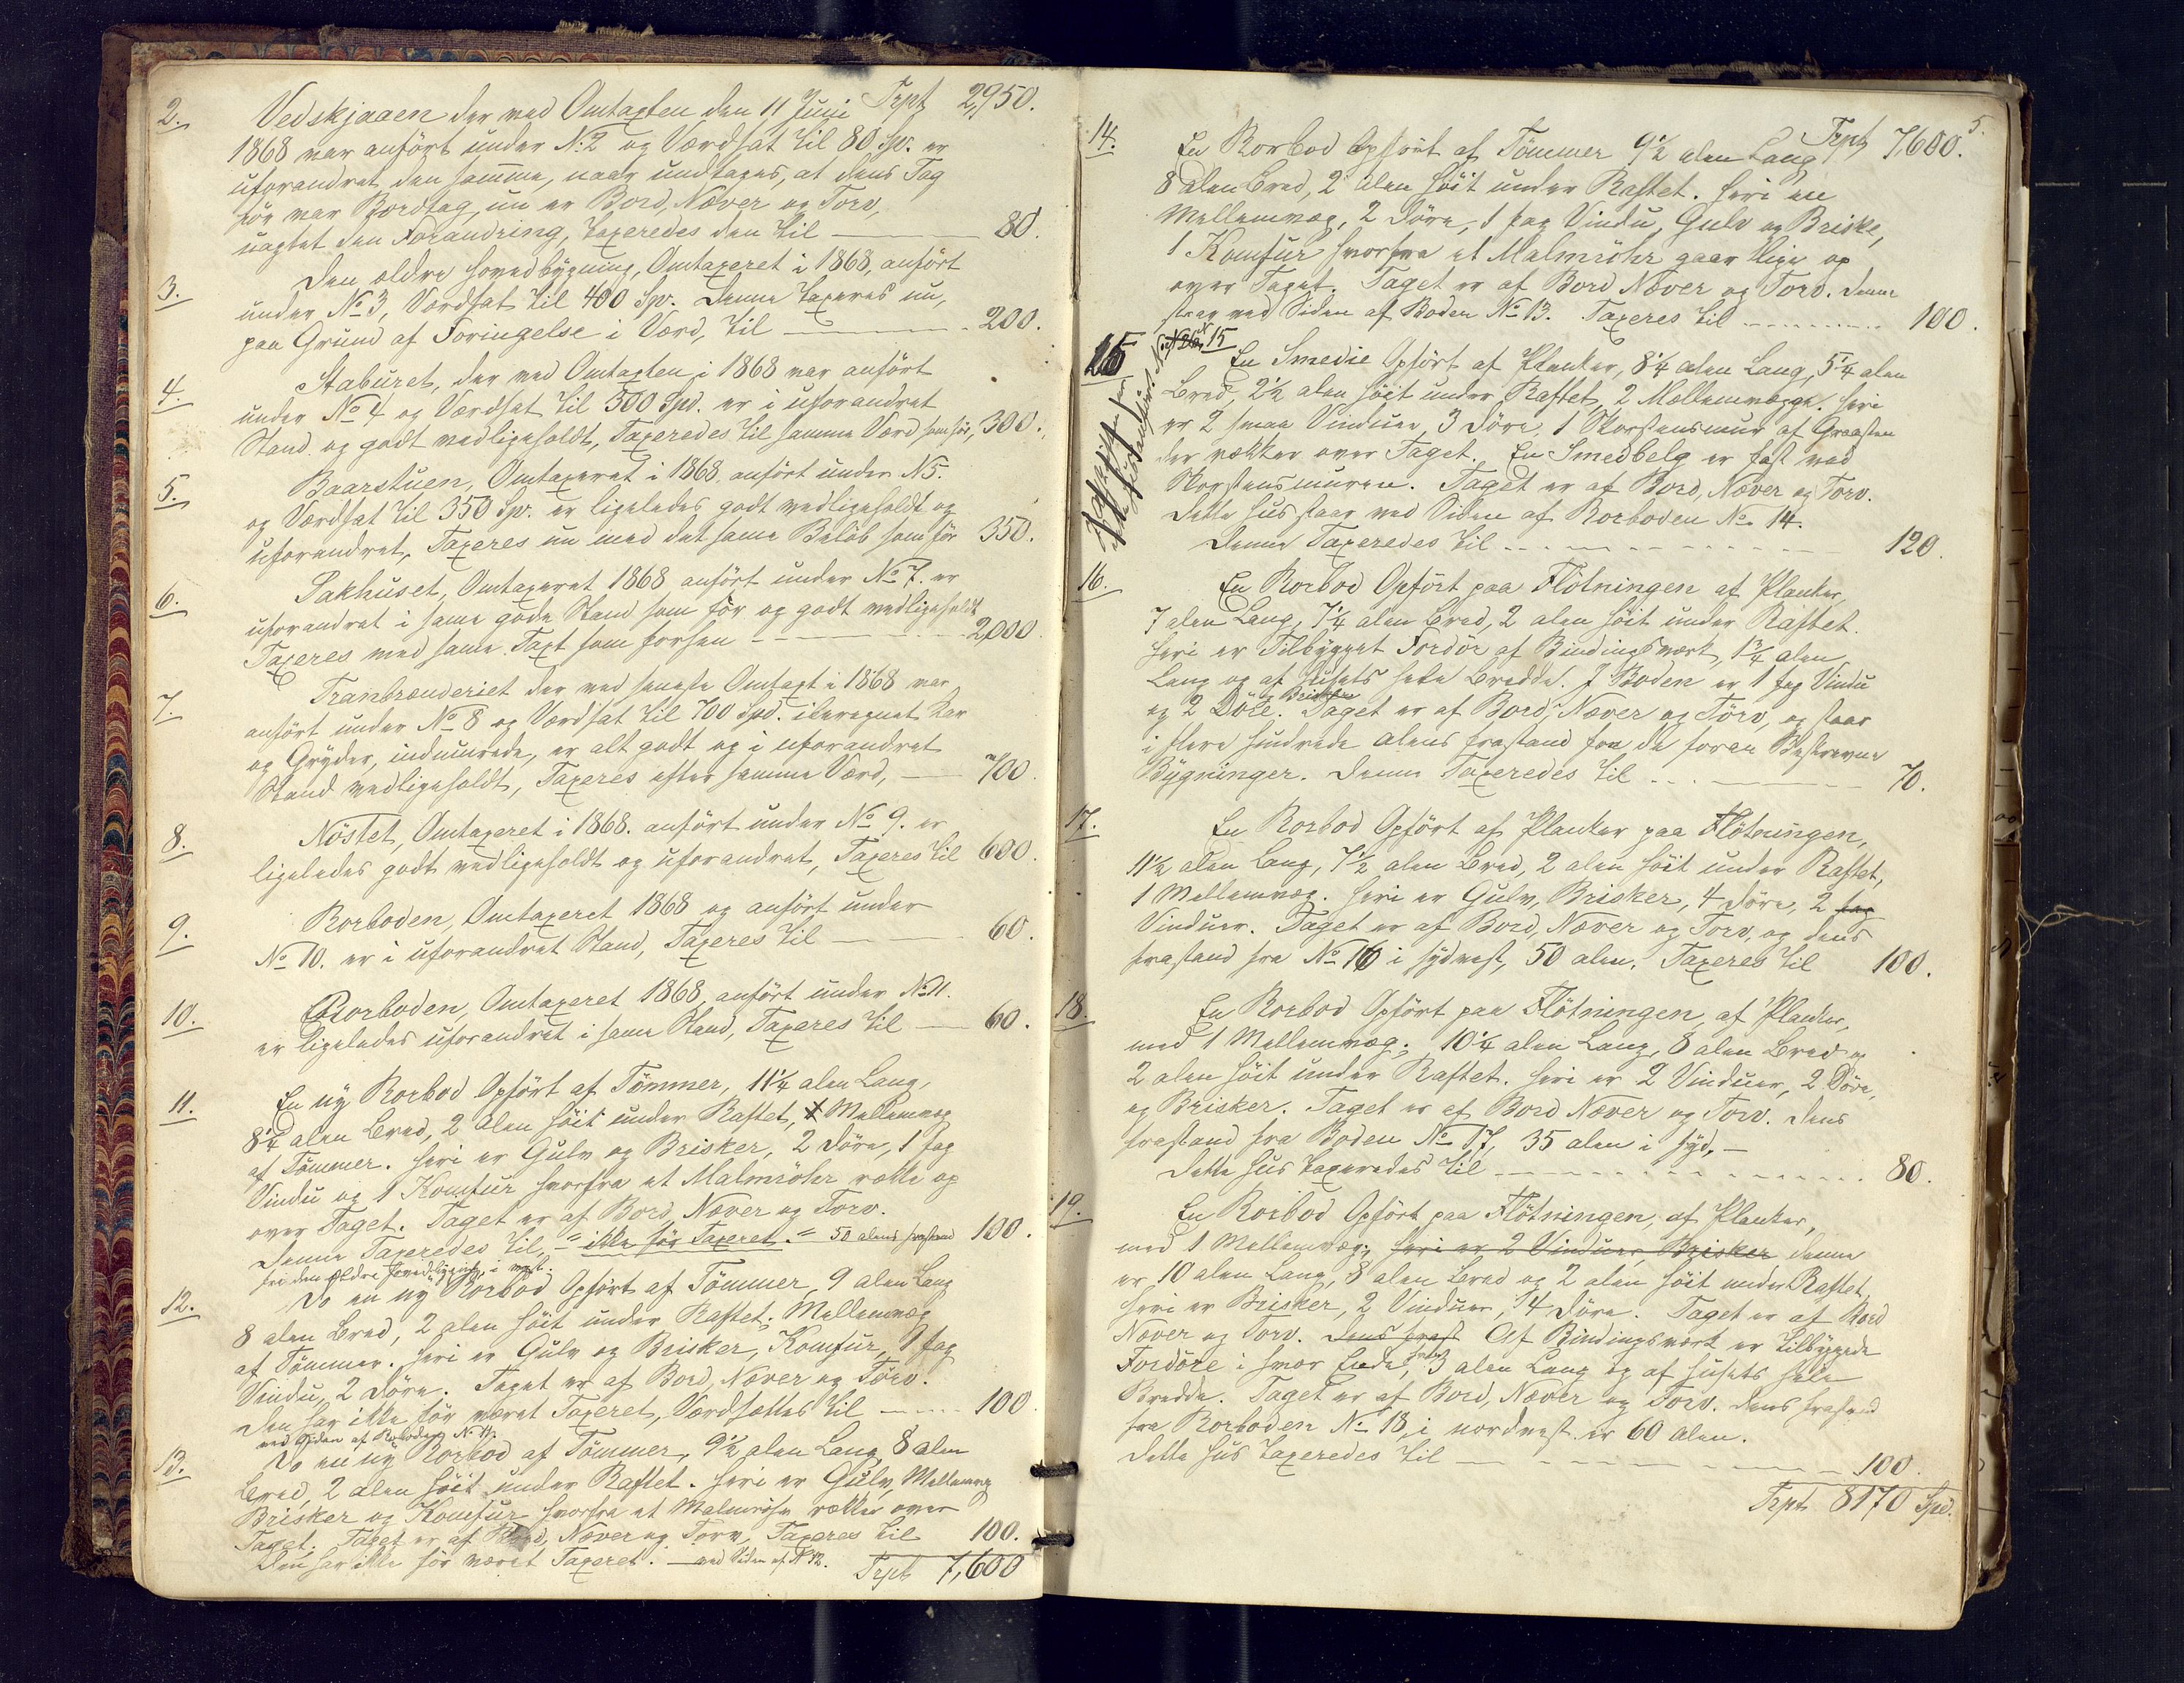 2. Vedskjaaen der ved Omtaxten den 11 Juni Trpt 2,950.
1868 var anført under No. 2 og Værdsat til 80 Sp. er
uforandret den samme, naar undtages, at dens Tag
før var Bordtag, nu er Bord, Næver og Torv,
uagtet den Forandring, taxeredes den til — 80.
3. Den eldre Hovedbygning, Omtaxeret i 1868, anført
under No 3, Værdsat til 400 Sp. Denne taxeres nu,
paa Grund af Foringelse i Værd, til — 200.
4. Staburet, der ved Omtaxten i 1868 var anført
under No 4 og Værdsat til 300 Spd. er i uforandret
Stand og godt vedligeholdt, Taxeredes til samme Værd som før, 300.
5. Baarstuen, Omtaxeret i 1868, anført under N 5.
og Værdsat til 350 Sp. er ligeledes godt vedligeholdt og
uforandret, Taxeres nu med det same Beløb som før 350.
6. Pakhuset, Omtaxeret 1868 anført under No 7. er
uforandret i same gode Stand som før og godt vedligeholdt
Taxeres med same Taxt som forhen — 2,000.
7. Tranbrænderiet der ved seneste Omtaxt i 1868 var
anført under No 8 og Værdsat til 700 Spd. iberegnet Kar
og Gryder, indmurede, er alt godt og i uforandret
Stand vedligeholdt, Taxeres efter samme Værd, — 700.
8. Nøstet, Omtaxeret i 1868. anført under No 9. er
ligeledes godt vedligeholdt og uforandret, Taxeres til 600.
9. Rorboden, Omtaxeret 1868 og anført under
No 10. er i uforandret Stand, Taxeres til — 60.
10. Rorboden, Omtaxeret 1868, anført under No 11.
er ligeledes uforandret i same Stand, Taxeres til — 60.
11. En ny Rorbod Opført af Tømmer, 11¼ alen Lang,
8¼ alen Bred, 2 alen høit under Raftet, 1 Mellemvæg
af Tømmer. Heri er Gulv og Brisker, 2 Døre, 1 fag
Vindu og 1 Komfur hvorfra et Malmrøhr rækker op
over Taget. Taget er af Bord, Næver og Torv.
Denne Taxeredes til, = ikke før Taxeret. = 50 alens frastand 100.
fra den Eldre Hovedbygning i vest.
12. Do en ny Rorbod Opført af Tømmer, 9 alen Lang
8 alen Bred, 2 alen høit under Raftet. Mellemvæg
af Tømmer. Heri er Gulv og Brisker, Komfur, 1 fag
Vindu, 2 Døre. Taget er af Bord, Næver og Torv.
Den har ikke før været Taxeret, Værdsættes til — 100
ved Siden af Rorboden No 11.
13. Do en ny Rorbod af Tømmer, 9½ alen Lang 8 alen
Bred, 2 alen høit under Raftet. Heri er Gulv, Mellemvæg
Brisker og Komfur hvorfra et Malmrøhr rækker over
Taget. Taget er af Bord, Næver og Torv, Taxeres til 100.
Den har ikke før været Taxeret. — ved Siden af N 12. Trpt 7,600
5.
Trpt 7,600.
14. En Rorbod Opført af Tømmer 9½ alen Lang,
8 alen Bred, 2 alen høit under Raftet. Heri en
Mellemvæg, 2 Døre, 1 fag Vindu, Gulv og Briske,
1 Komfur hvorfra et Malmrøhr gaar lige op
over Taget. Taget er af Bord Næver og Torv. Denne
staar ved Siden af Boden No 13. Taxeres til — 100.
15 15 En Smedie Opført af Planker, 8¼ alen Lang, 5¼ alen
Bred, 2½ alen høit under Raftet, 2 Mellemvægge. Heri
er 2 smaa Vinduer, 3 Døre, 1 Skorstensmur af Graasten
der rækker over Taget. En Smedbelg er fast ved
Skorstensmuren. Taget er af Bord, Næver og Torv.
Dette Hus staar ved Siden af Rorboden No 14.
Denne Taxeredes til — 120.
16. En Rorbod Opført paa Fløtningen af Planker,
7 alen Lang, 7¼ alen Bred, 2 alen høit under Raftet.
Heri er Tilbygget Fordør af Bindingsværk, 1¾ alen
Lang og af Husets hele Bredde. I Boden er 1 fag Vindu
og 2 Døre. Brisker Taget er af Bord, Næver og Torv, og staar
i flere hundrede alens frastand fra de foran Beskrevne
Bygninger. Denne Taxeredes til — 70.
17. En Rorbod Opført af Planker paa Fløtningen,
11½ alen Lang, 7½ alen Bred, 2 alen høit under Raftet,
1 Mellemvæg. Heri er Gulv, Brisker, 4 Døre, 2 fag
Vinduer. Taget er af Bord, Næver og Torv, og dens
frastand fra No 16 i sydvest, 50 alen. Taxeres til 100.
18. En Rorbod Opført paa Fløtningen, af Planker,
med 1 Mellemvæg; 10¼ alen Lang, 8 alen Bred og
2 alen høit under Raftet. Heri er 2 Vinduer, 2 Døre,
og Brisker. Taget er af Bord Næver og Torv. Dens
frastand fra Boden No 17, 35 alen i Syd, —
Dette Hus taxeredes til — 80.
19. En Rorbod Opført paa Fløtningen, af Planker,
med 1 Mellemvæg; heri er 2 Vinduer, Brisker denne
er 10 alen Lang, 8 alen Bred og 2 alen høit under Raftet,
Heri er Brisker, 2 Vinduer, 4 Døre. Taget er af Bord
Næver og Torv. Dens frast Af Bindingsværk er tilbyggede
Fordøre i hver Ende, 3 alen Lang og af Husets hele
Bredde. Taget er af Bord, Næver og Torv. Dens frastand
fra Rorboden No 18, i nordvest er 60 alen.
Dette Hus taxeredes til — 100.
Trpt 8170 Spd.